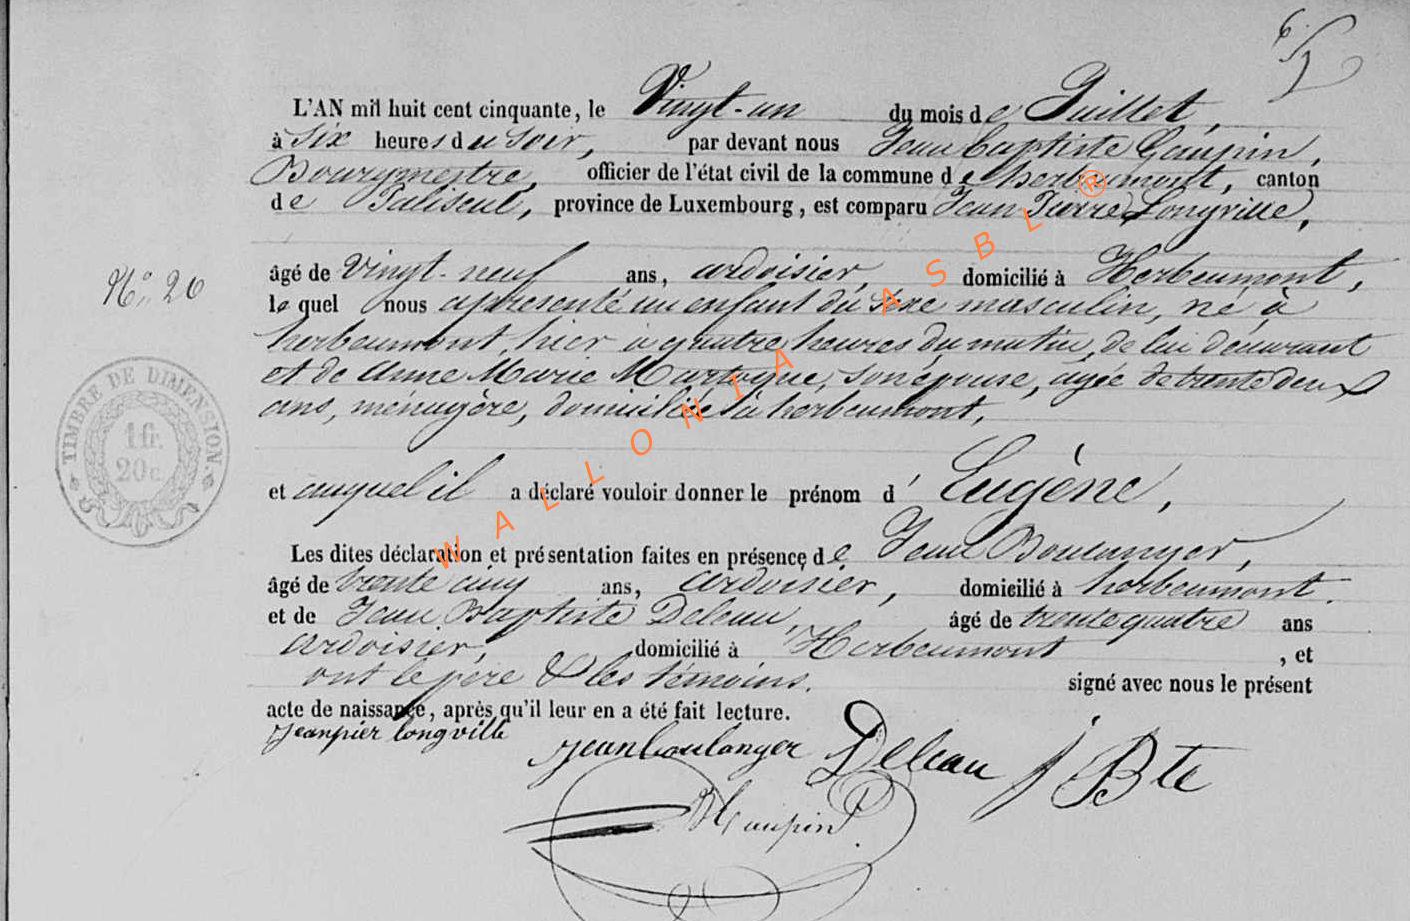 L'AN mil huit cent cinquante, le Vingt-un du mois de Juillet,
à six heures du soir, par devant nous Jean Baptiste Gaupin,
Bourgmestre, officier de l'état civil de la commune de herbeumont, canton
de Paliseul, province de Luxembourg, est comparu Jean Pierre Longville,
âgé de vingt-neuf ans, ardoisier, domicilié à Herbeumont,
N° 20
lequel nous a présenté un enfant du sexe masculin, né à
herbeumont, hier à quatre heures du matin, de lui déclarant
et de Anne Marie Martogue, son épouse, agée de trente deux
ans, ménagère, domiciliée à herbeumont,
TIMBRE DE DIMENSION.
1 fr.
20 c
et auquel il a déclaré vouloir donner le prénom d' Eugène,
Les dites déclaration et présentation faites en présence de Jean Boulanger,
âgé de trente cinq ans, ardoisier, domicilié à herbeumont.
et de Jean Baptiste Deleau, âgé de trente quatre ans
ardoisier, domicilié à Herbeumont, et
ont le père & les témoins. signé avec nous le présent
acte de naissance, après qu'il leur en a été fait lecture.
jeanpier longville
jean boulanger Deleau j Bte
Gaupin
WALLONIA ASBL ®